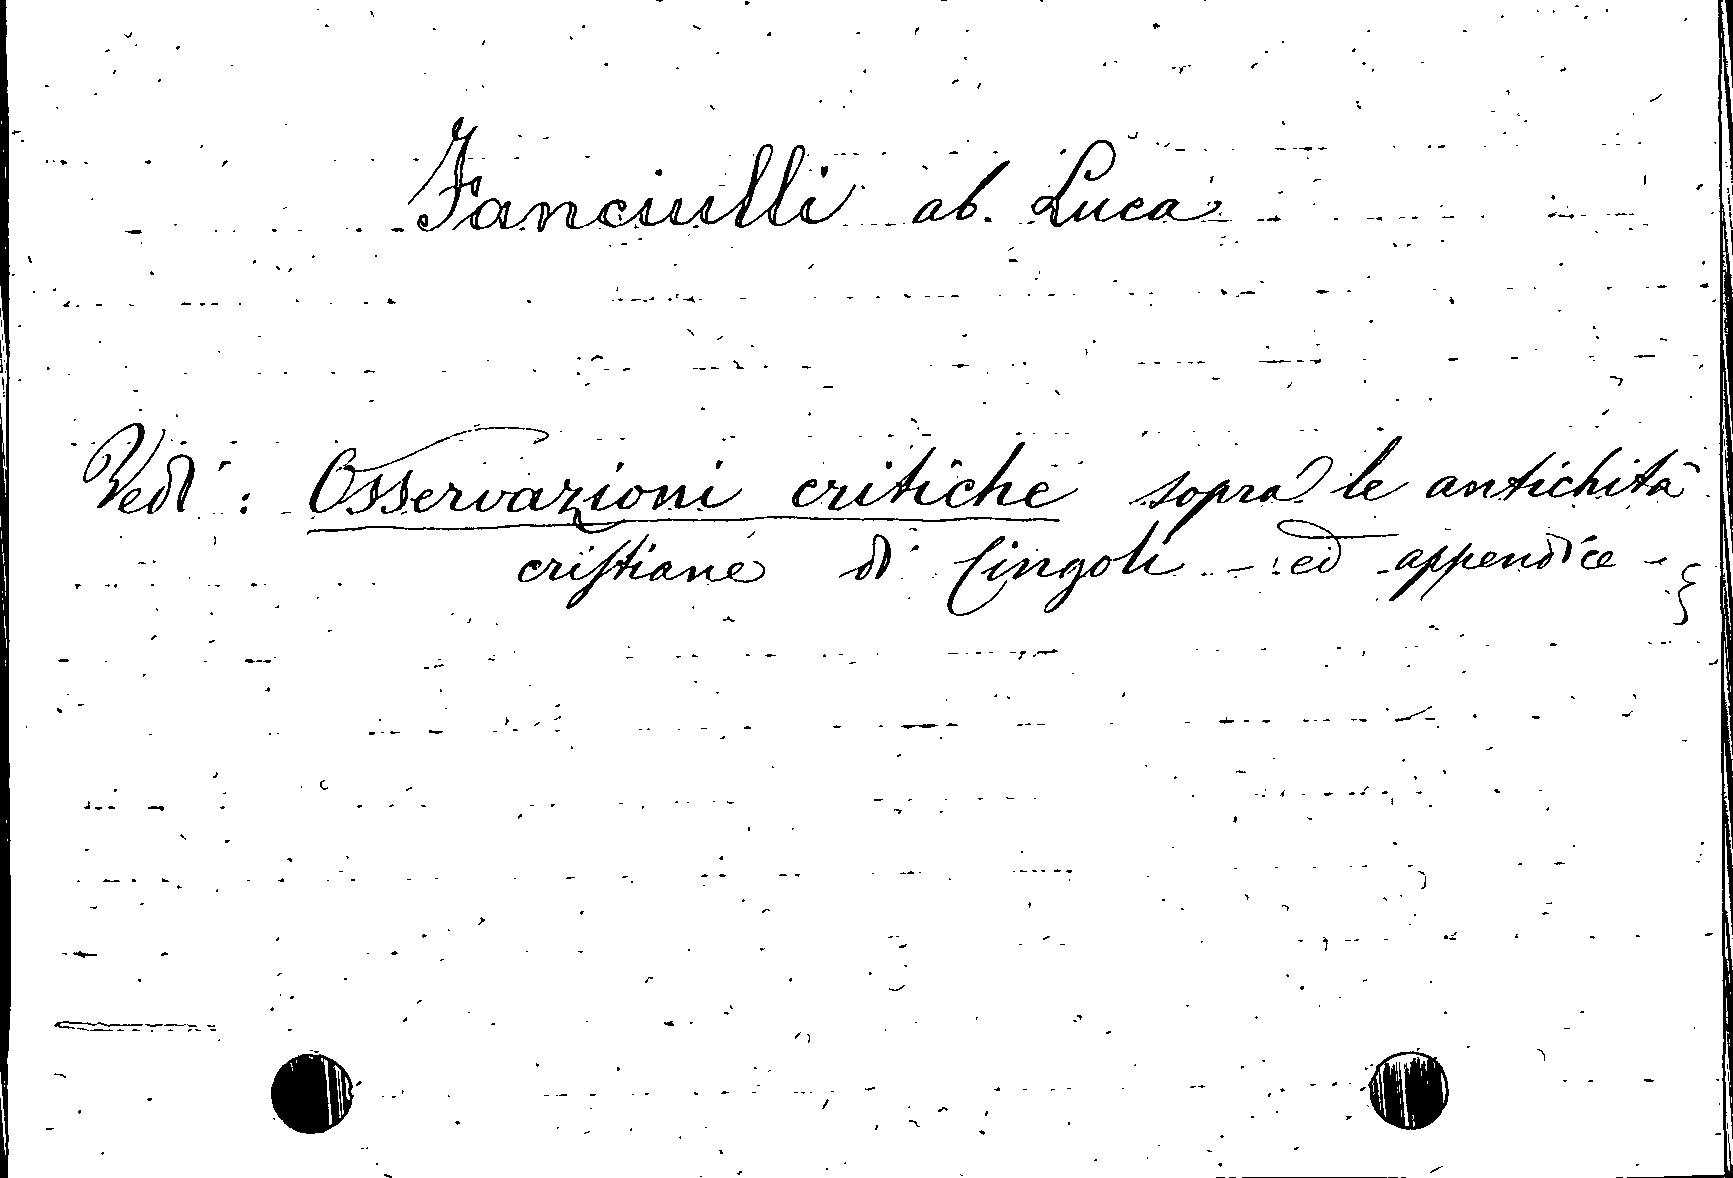 Fanciulli ab. Luca
Vedi: Osservazioni critiche sopra le antichità
cristiane di Cingoli - ed appendice -